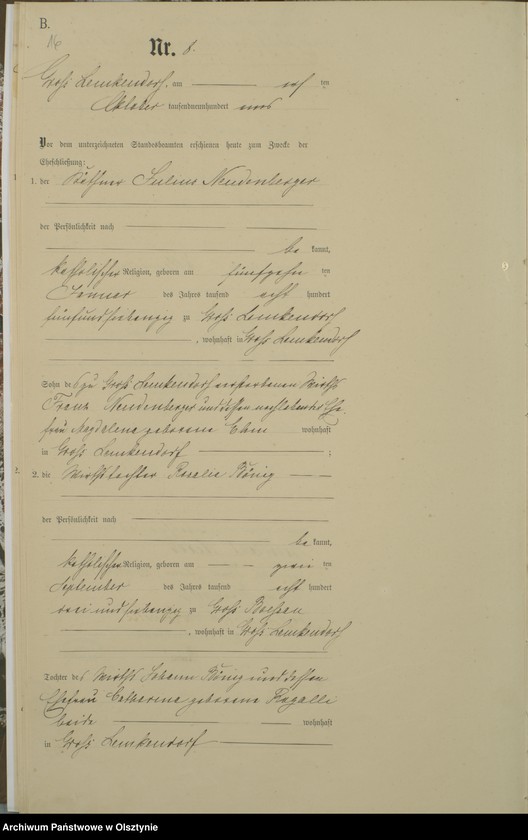 B.
16
Nr. 8.
Groß Lemkendorf, am acht ten
Oktober tausendneunhundert eins
Vor dem unterzeichneten Standesbeamten erschienen heute zum Zwecke der
Eheschließung:
1. der Käthner Julius Neudenberger
der Persönlichkeit nach
be kannt,
katholischer Religion, geboren am fünfzehn ten
Jenner des Jahres tausend acht hundert
fünfundsiebenzig zu Groß Lemkendorf
, wohnhaft in Groß Lemkendorf
Sohn des zu Groß Lemkendorf verstorbenen Wirths
Franz Neudenberger und dessen nachlebender Ehe
frau Magdalena geborene wohnhaft
in Groß Lemkendorf ;
2.
2. die Wirthstochter Rosalie König
der Persönlichkeit nach
be kannt,
katholischer Religion, geboren am zwei ten
September des Jahres tausend acht hundert
undsiebenzig zu Groß
, wohnhaft in Groß Lemkendorf
Tochter des Wirths Johann König und dessen
Ehefrau Catharina geborene Rogalli
beide wohnhaft
in Groß Lemkendorf
Archiwum Państwowe w Olsztynie